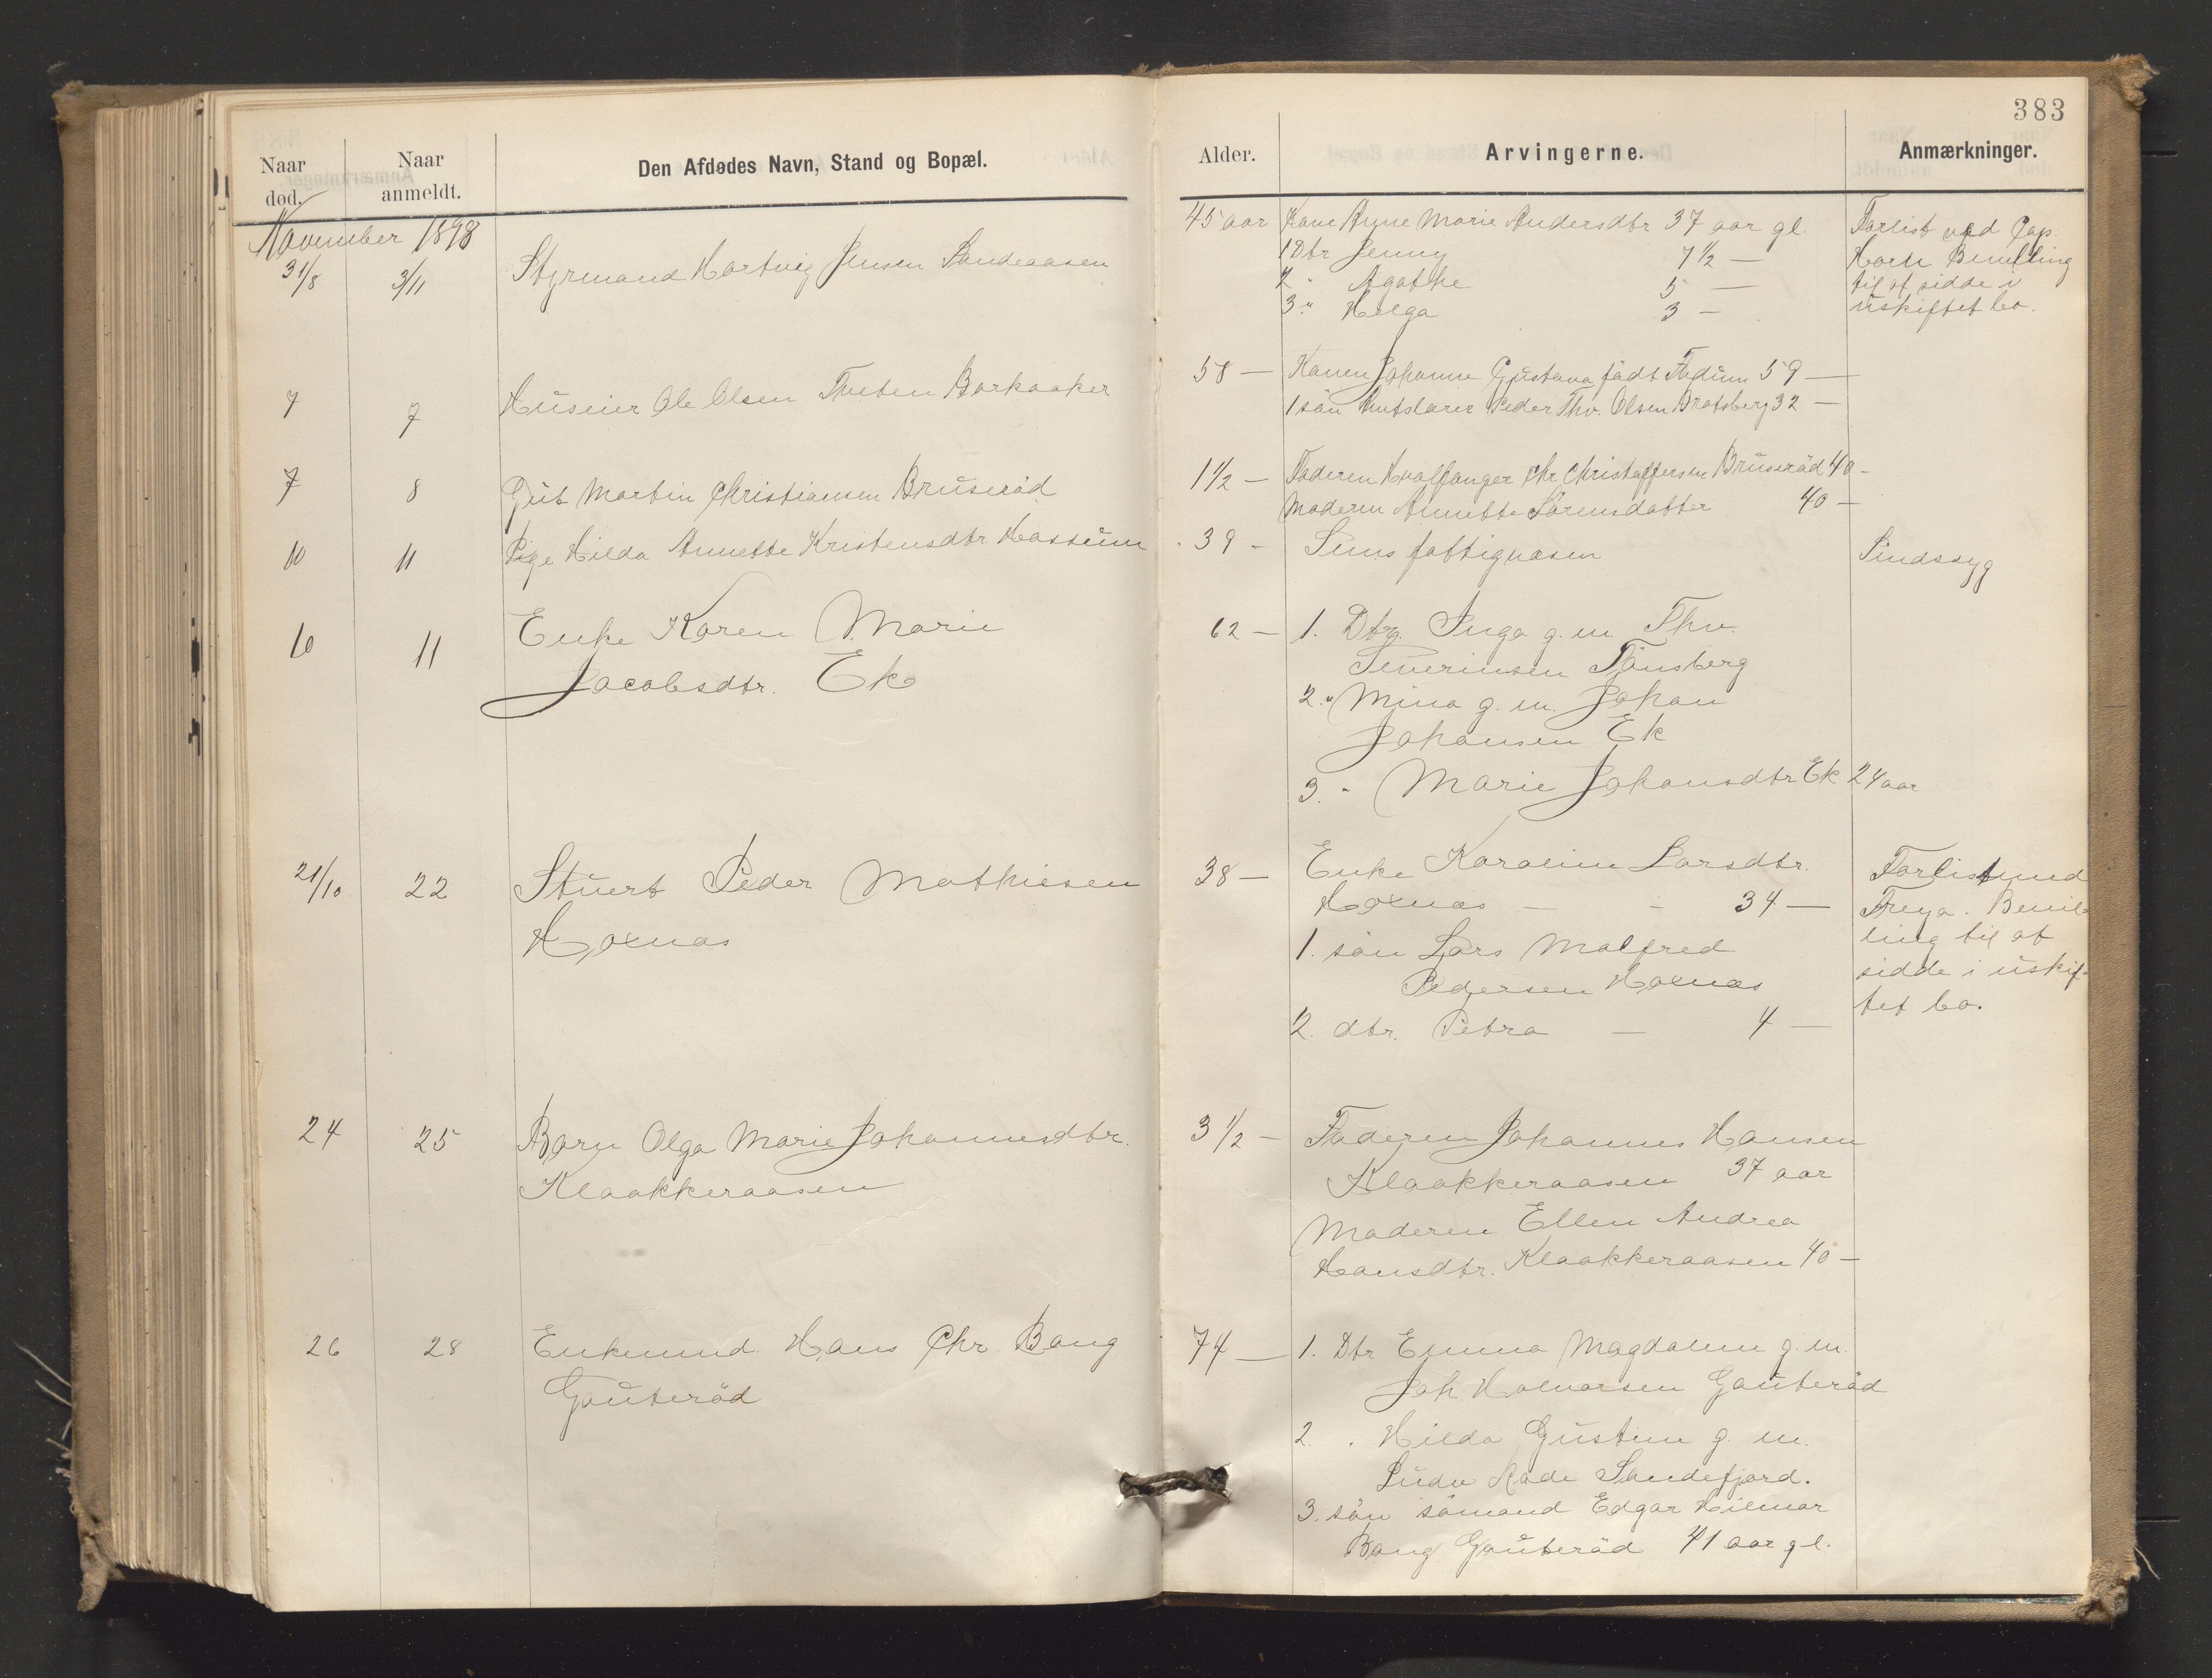 383
Naar død.
Naar anmeldt.
Den Afdødes Navn, Stand og Bopæl.
Alder.
Arvingerne.
Anmærkninger.
November 1898
31/8 3/11 Styrmand Hartvig Jensen Sandeaasen
45 aar Kone Anne Marie Andersdtr 37 aar gl.
1 Dtr Jenny 7 1/2 —
2 " Agathe 5 —
3 " Helga 3 —
Forlist ved Cap.
Horn Bevilling
til at sidde i
uskiftet bo.
7 7 Huseier Ole Olsen Tveten Barkaaker
58 — Konen Johanne Gustava født Fadum 59 —
1 sön Peder Thv. Olsen Bratsberg 32 —
7 8 Gut Martin Christiansen Bruseröd
1 1/2 — Faderen Hvalfanger Chr Christoffersen Bruseröd 40 —
Moderen Annette Sörensdatter 40 —
10 11 Pige Hilda Annette Kristensdtr Hassum
39 — Sems fattigvæsen
Sindssyg
10 11 Enke Karen Marie
Jacobsdtr. Ek
62 — 1. Dtr. Inga g. m. Thv.
Severinsen Tönsberg
2. " Mina g. m. Johan
Johansen Ek
3. " Marie Johansdtr Ek 24 aar
21/10 22 Stuert Peder Mathisen
Hoxnæs
38 — Enke Karoline Larsdtr.
Hoxnæs — - 34 —
1. sön Lars Malfred
Pedersen Hoxnæs
2. dtr. Petra — 4 —
Forlist med
Freya. Bevil-
ling til at
sidde i uskif-
tet bo.
24 25 Barn Olga Marie Johannesdtr.
Klaakkeraasen
3 1/2 — Faderen Johannes Hansen
Klaakkeraasen 37 aar
Moderen Ellen Andrea
Hansdtr. Klaakkeraasen 40 —
26 28 Enkemnd. Hans Chr Bang
Gauteröd
74 — 1. Dtr Emma Magdalene g. m.
Joh Halvorsen Gauteröd
2. " Hilda Gustine g. m.
Ludv Rode Sandefjord.
3. sön sömand Edgar Hilmar
Bang Gauteröd 41 aar gl.